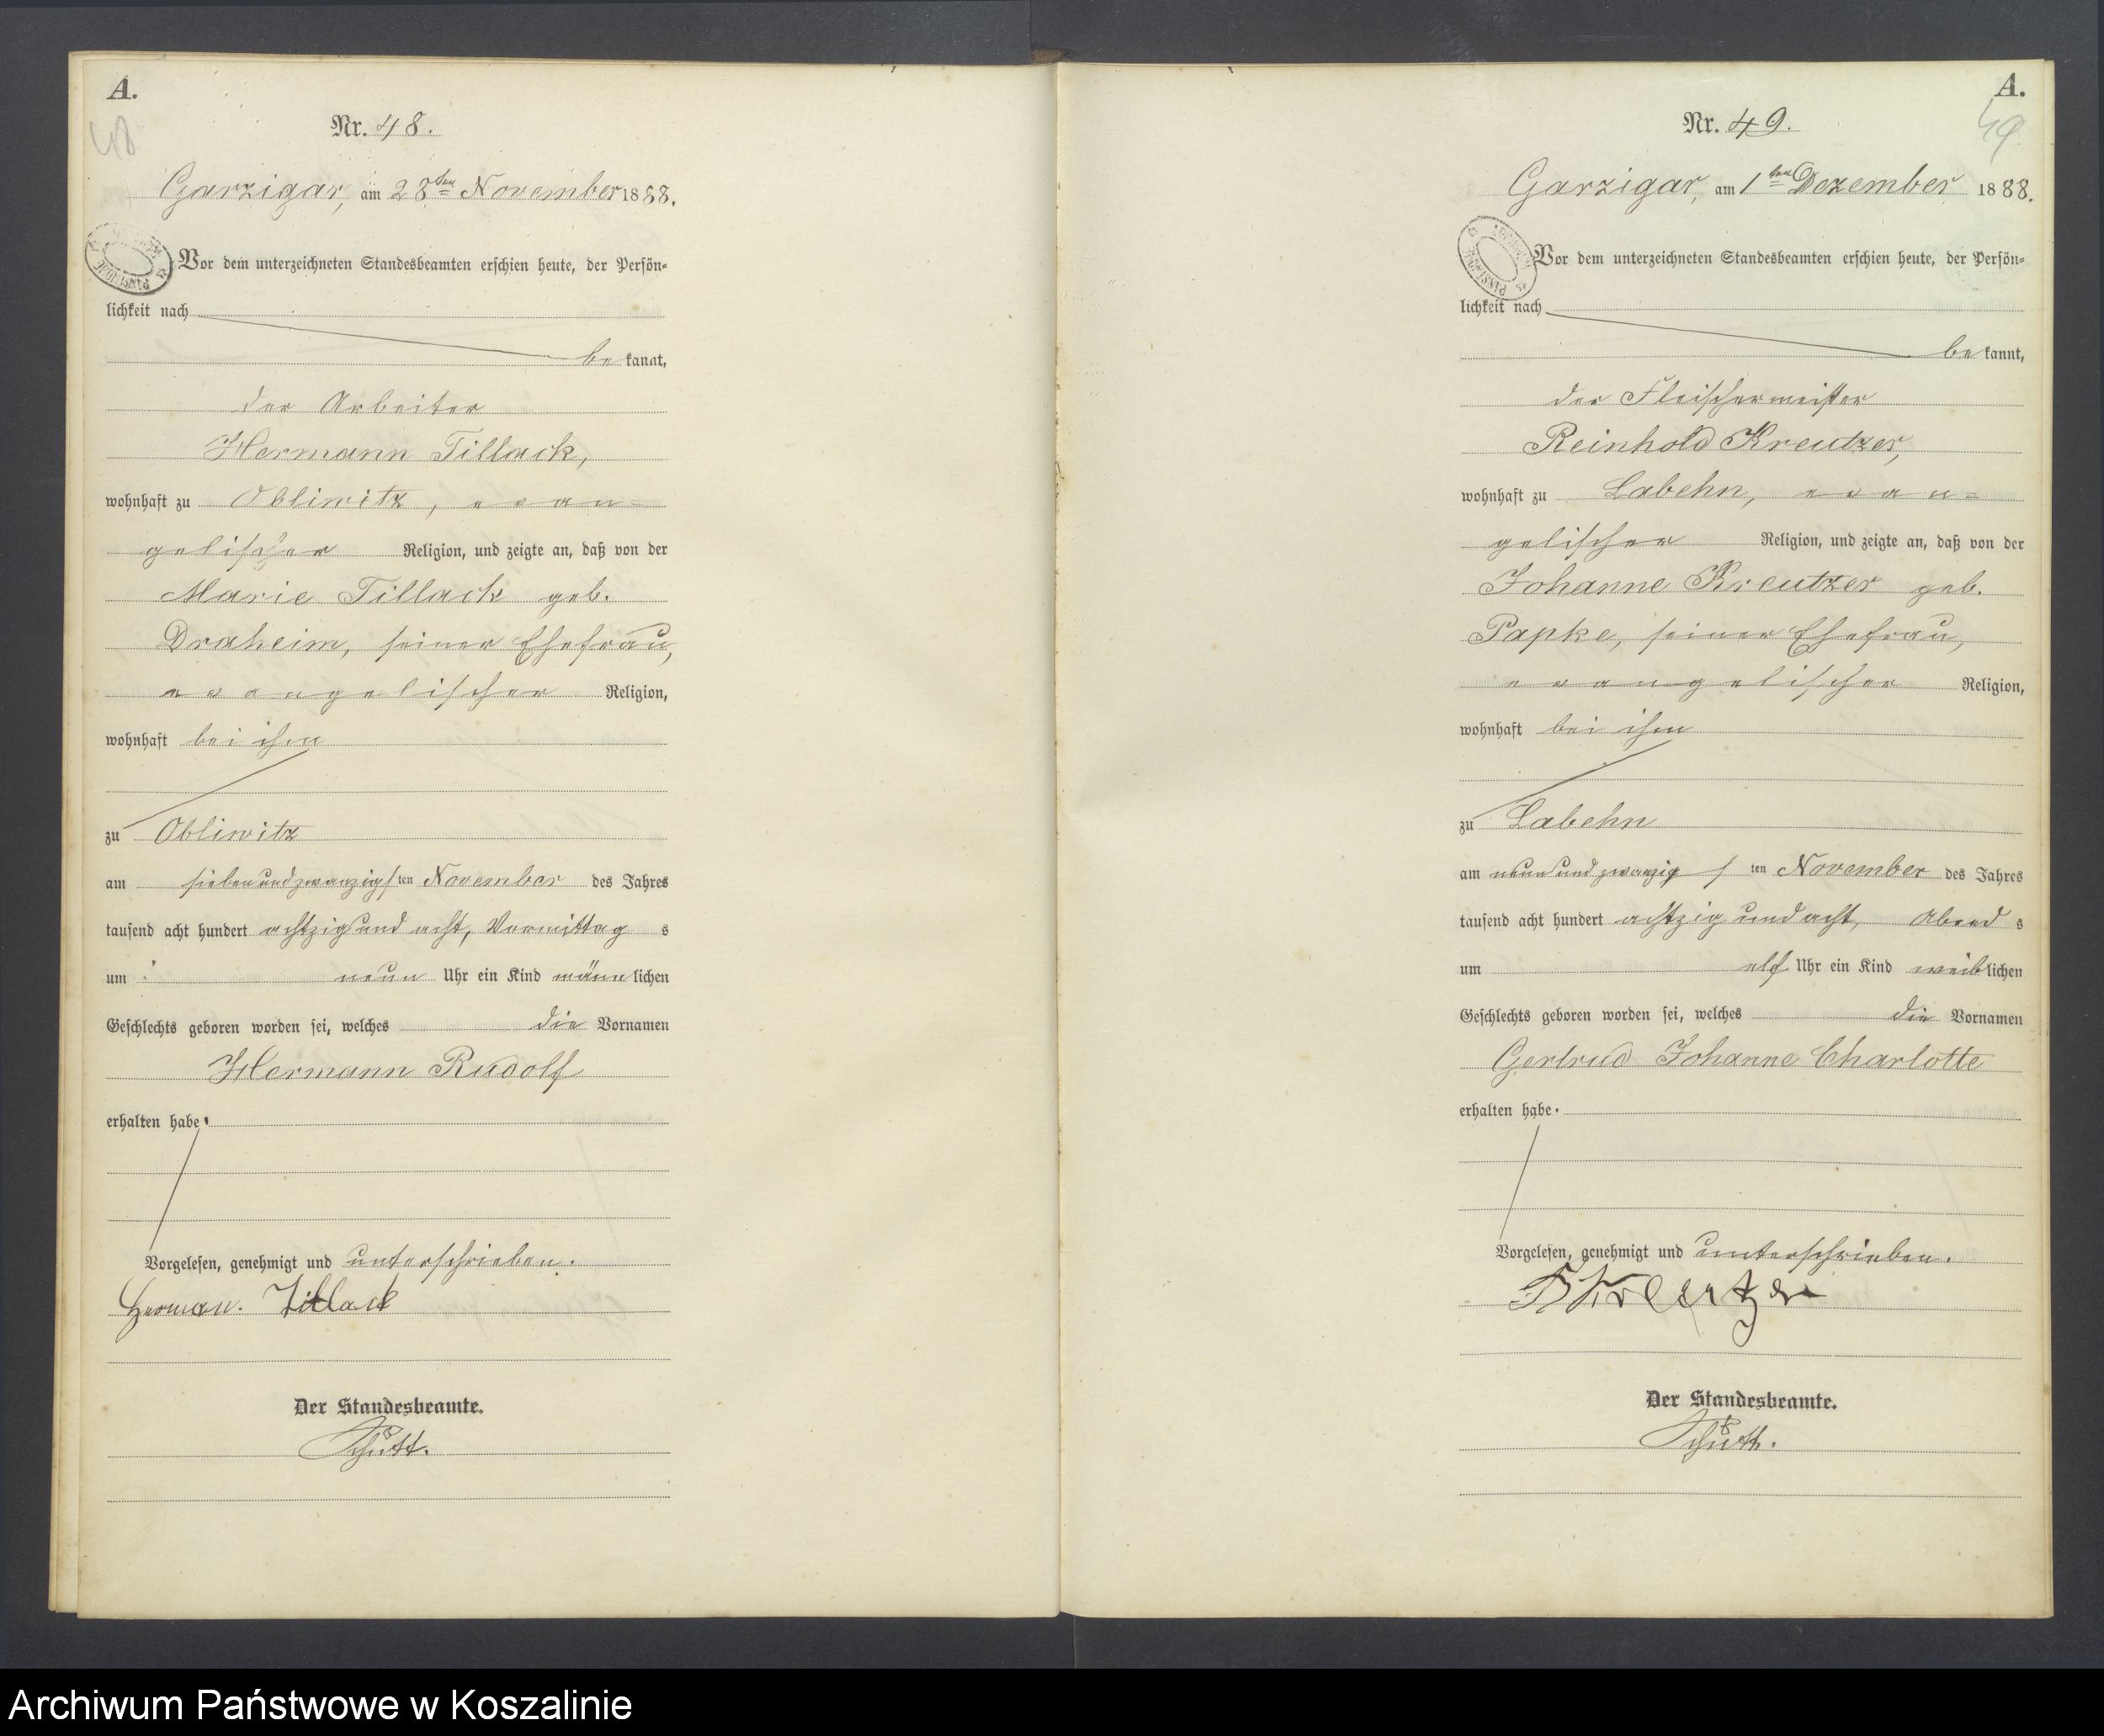 A.
48
Nr. 48.
Garzigar, am 28ten November 1888.
Vor dem unterzeichneten Standesbeamten erschien heute, der Persön-
lichkeit nach
bekannt,
der Arbeiter
Hermann Tillack,
wohnhaft zu Obliwitz, evan-
gelischer Religion, und zeigte an, daß von der
Marie Tillack geb.
Draheim, seiner Ehefrau,
evangelischer Religion,
wohnhaft bei ihm
zu Obliwitz
am siebenundzwanzigsten November des Jahres
tausend acht hundert achtzig und acht, Vormittags
um neun Uhr ein Kind männlichen
Geschlechts geboren worden sei, welches die Vornamen
Hermann Rudolf
erhalten habe.
Vorgelesen, genehmigt und unterschrieben.
Herman. Tillack
Der Standesbeamte.
Schütt.
A.
49.
Nr. 49.
Garzigar, am 1ten Dezember 1888.
Vor dem unterzeichneten Standesbeamten erschien heute, der Persön-
lichkeit nach
bekannt,
der Fleischermeister
Reinhold Kreutzer,
wohnhaft zu Labehn, evan-
gelischer Religion, und zeigte an, daß von der
Johanne Kreutzer geb.
Papke, seiner Ehefrau,
evangelischer Religion,
wohnhaft bei ihm
zu Labehn
am neunundzwanzigsten November des Jahres
tausend acht hundert achtzig und acht, Abends
um elf Uhr ein Kind weiblichen
Geschlechts geboren worden sei, welches die Vornamen
Gertrud Johanne Charlotte
erhalten habe.
Vorgelesen, genehmigt und unterschrieben.
R Kreutzer
Der Standesbeamte.
Schütt.
Archiwum Państwowe w Koszalinie